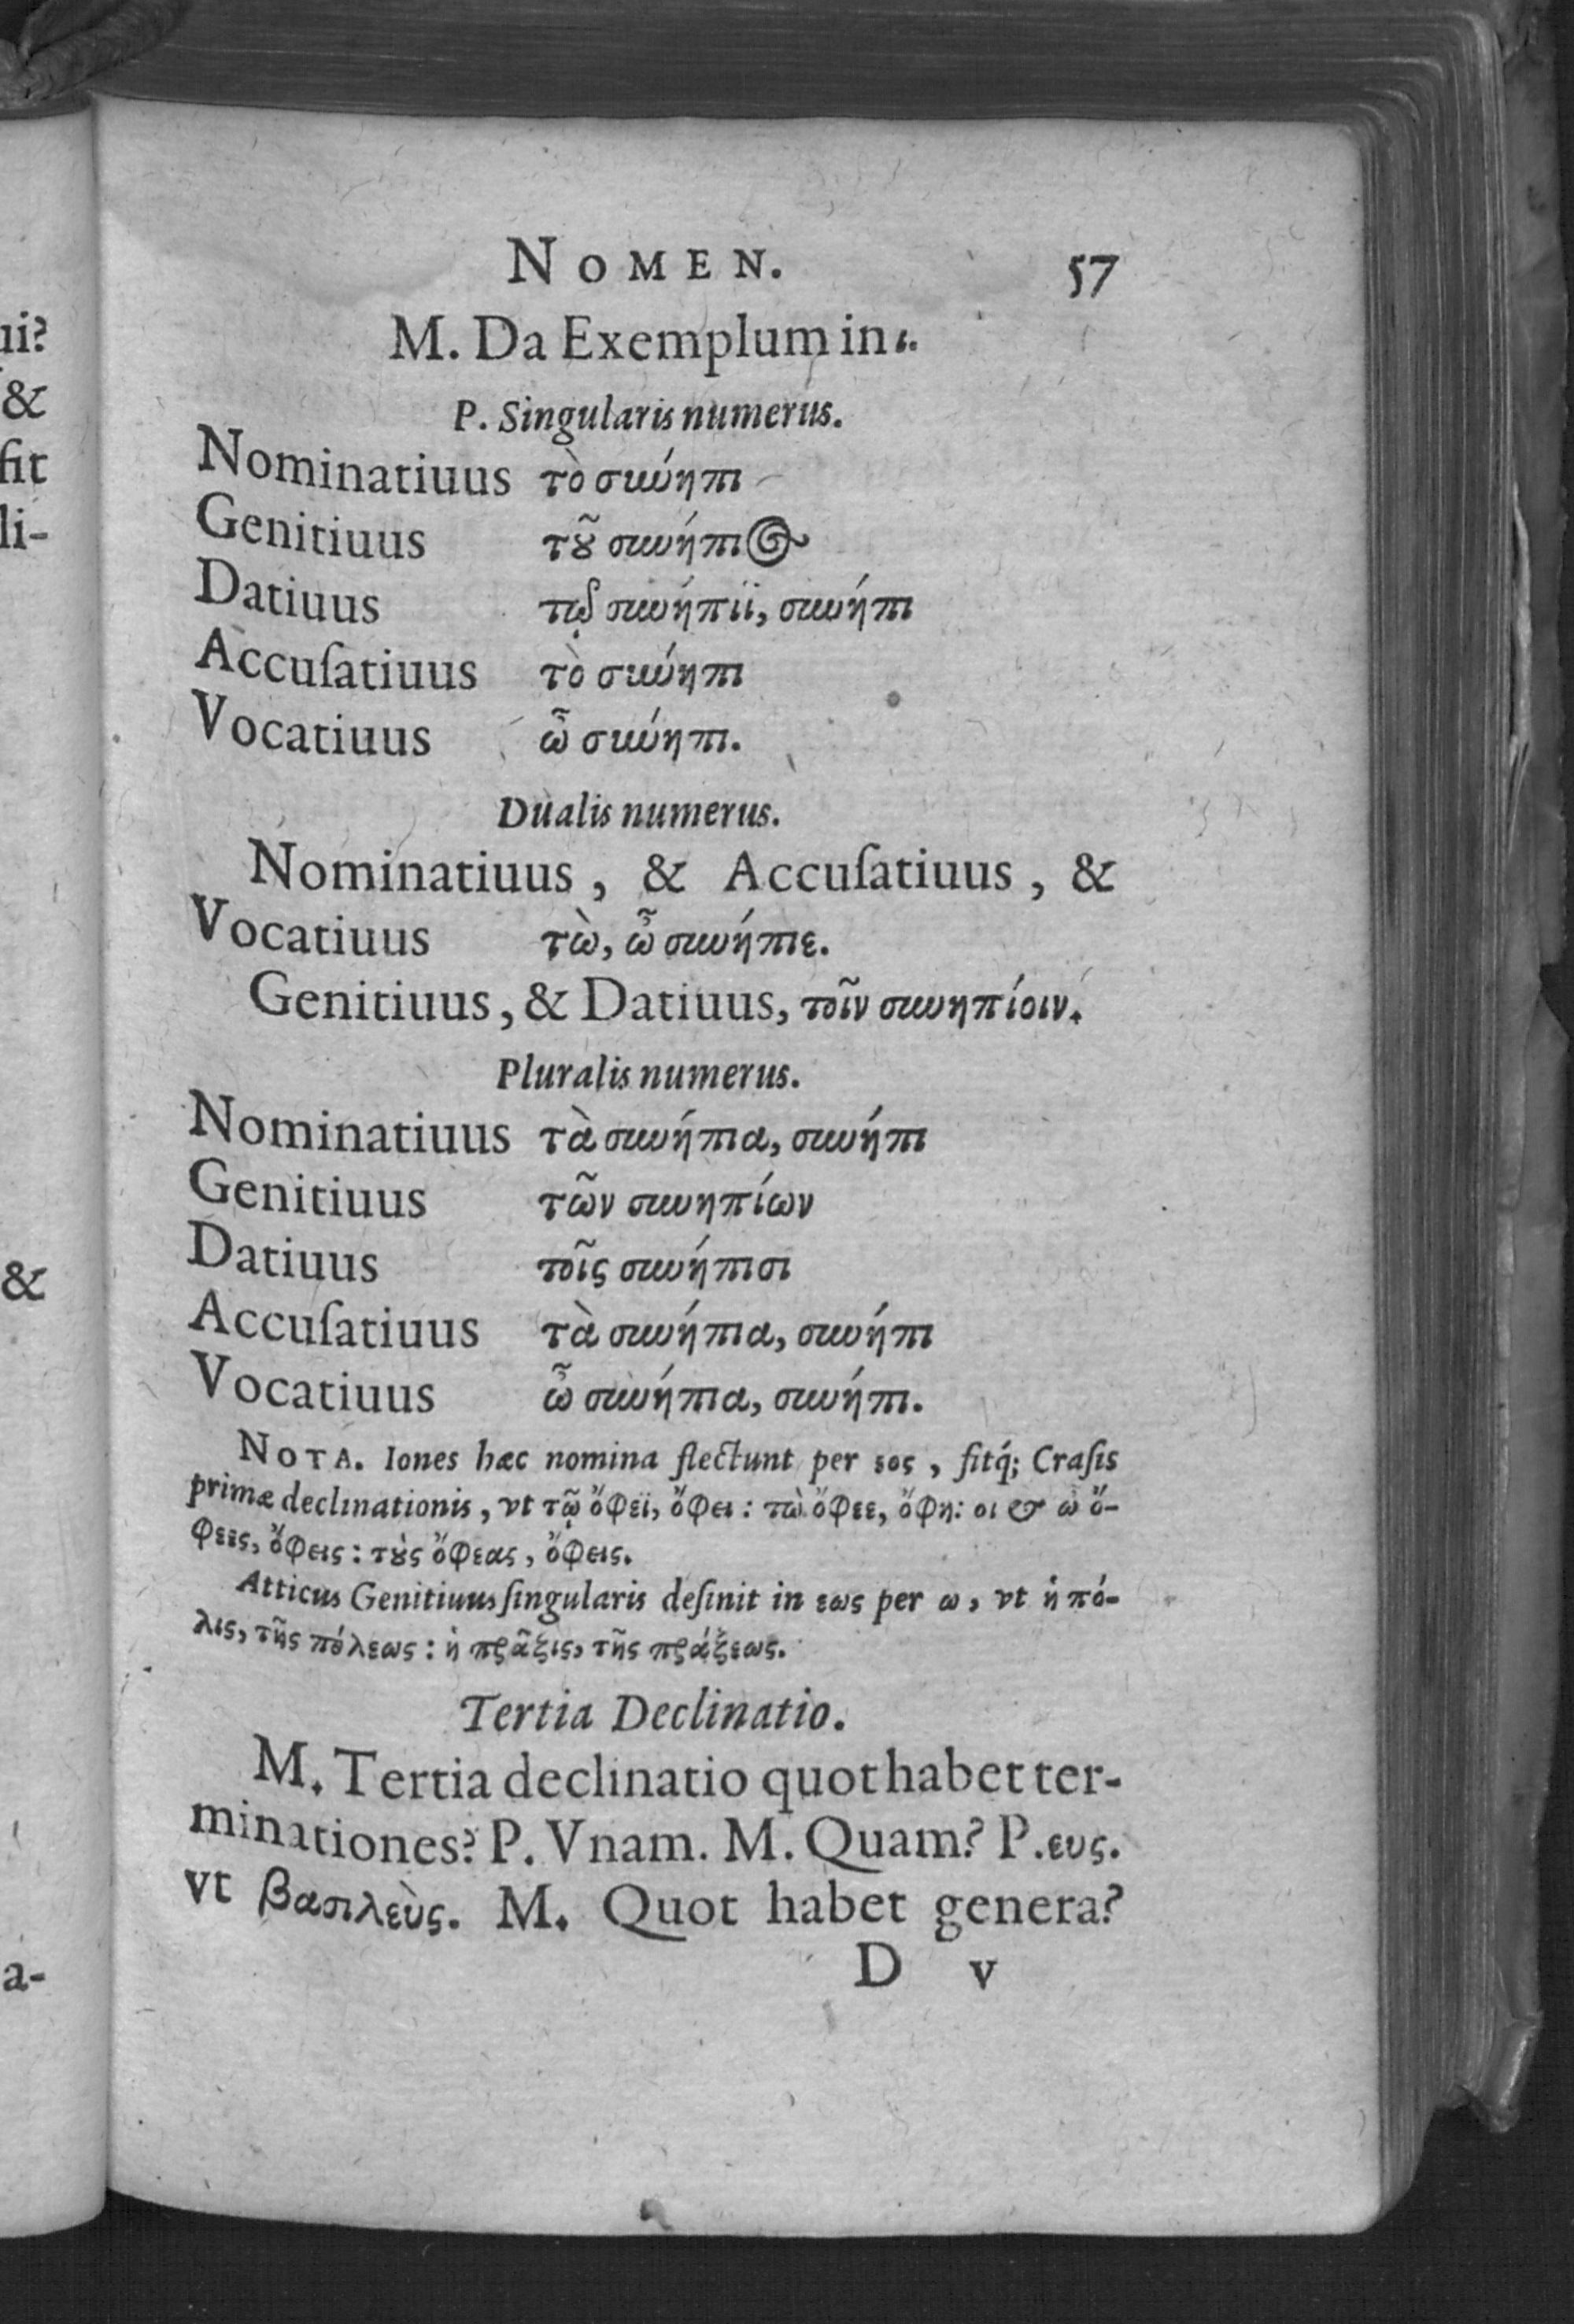 ui?
&
fit
li-
&
a-
NOMEN. 57
M. Da Exemplum in ι.
P. Singularis numerus.
Nominatiuus τὸ σίνηπι
Genitiuus τȣ͂ σινήπιος
Datiuus τῷ σινήπιϊ, σινήπι
Accuſatiuus τὸ σίνηπι
Vocatiuus ὦ σίνηπι.
Dualis numerus.
Nominatiuus, & Accuſatiuus, &
Vocatiuus τὼ, ὦ σινήπιε.
Genitiuus, & Datiuus, τοῖν σινηπίοιν.
Pluralis numerus.
Nominatiuus τὰ σινήπια, σινήπι
Genitiuus τῶν σινηπίων
Datiuus τοῖς σινήπισι
Accuſatiuus τὰ σινήπια, σινήπι
Vocatiuus ὦ σινήπια, σινήπι.
NOTA. Iones hæc nomina flectunt per εος, fitq́; Craſis
primæ declinationis, vt τῷ ὄφεϊ, ὄφει: τὼ ὄφεε, ὄφη: οι & ὠ ὄ-
φεες, ὄφεις: τȣ̀ς ὄφεας, ὄφεις.
Atticus Genitiuus ſingularis deſinit in εως per ω, vt ἡ πό-
λις, τῆς πόλεως: ἡ πρᾶξις, τῆς πράξεως.
Tertia Declinatio.
M. Tertia declinatio quot habet ter-
minationes? P. Vnam. M. Quam? P. ευς.
vt βασιλεὺς. M. Quot habet genera?
D v